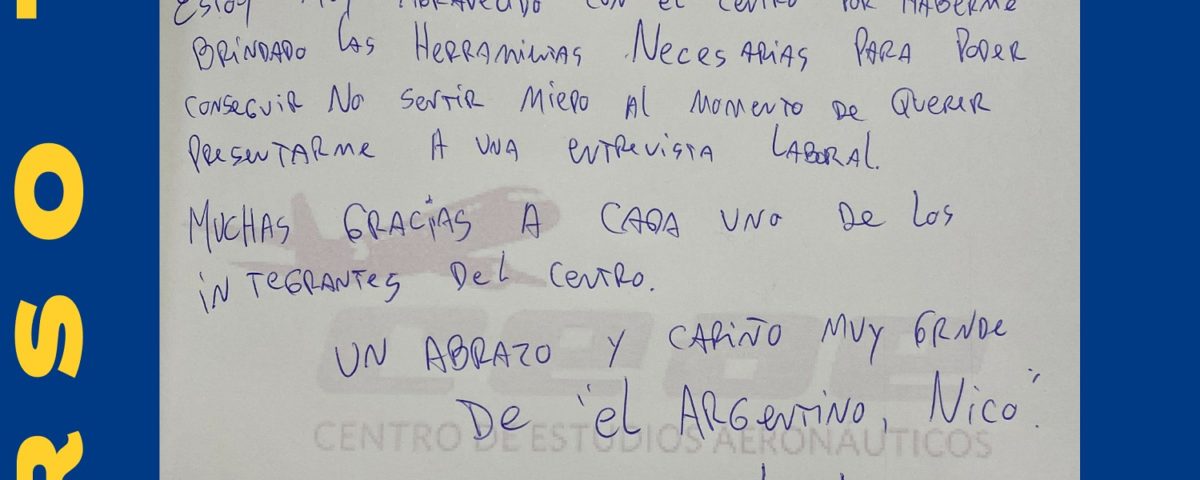 ESTOY MUY AGRADECIDO CON EL CENTRO POR HABERME
BRINDADO LAS HERRAMIENTAS NECESARIAS PARA PODER
CONSEGUIR NO SENTIR MIEDO AL MOMENTO DE QUERER
PRESENTARME A UNA ENTREVISTA LABORAL.
MUCHAS GRACIAS A CADA UNO DE LOS
INTEGRANTES DEL CENTRO.
UN ABRAZO Y CARIÑO MUY GRNDE
DE "EL ARGENTINO, NICO".
ceae
CENTRO DE ESTUDIOS AERONÁUTICOS
RSO